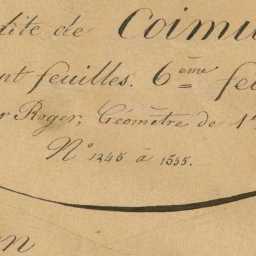 dite de Coimu
nt feuilles. 6ème feu
r Roger, Géomètre de 1
N° 1245 à 1555.